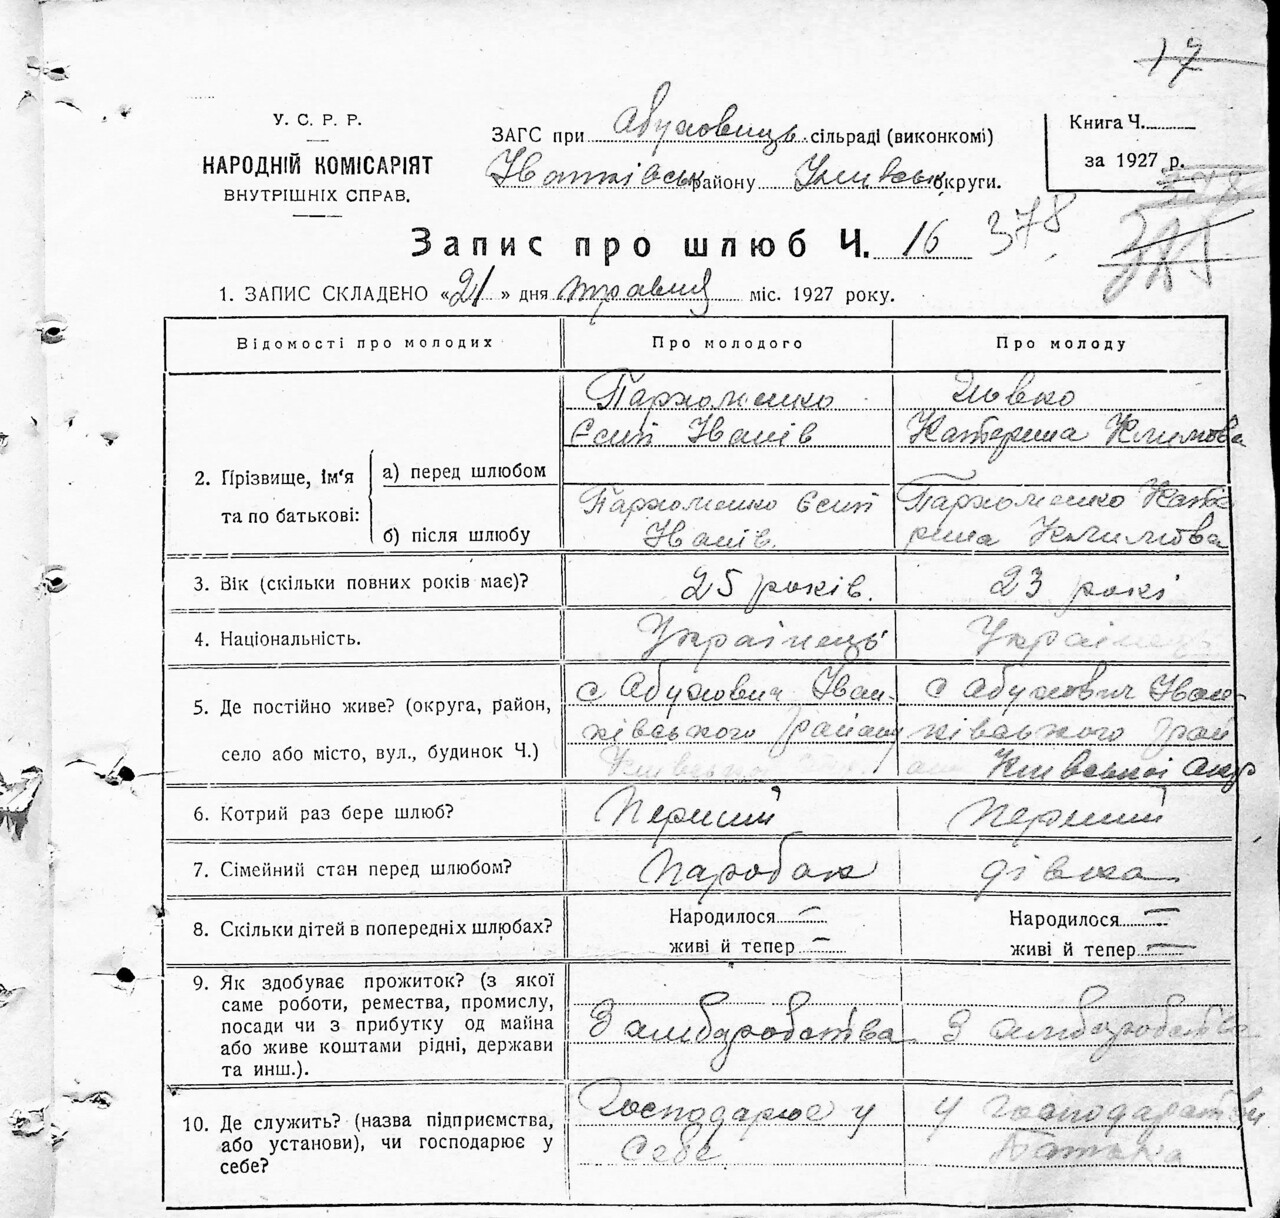 17
У. С. Р. Р.
НАРОДНІЙ КОМІСАРІЯТ
ВНУТРІШНІХ СПРАВ.
ЗАГС при Абуховицьк. сільраді (виконкомі)
Іванківськ району Київськ округи.
Книга Ч.
за 1927 р.
Запис про шлюб Ч. 16 378
1. ЗАПИС СКЛАДЕНО «21» дня травня міс. 1927 року.
Відомості про молодих Про молодого Про молоду
2. Прізвище, ім'я та по батькові:
а) перед шлюбом
Пархоменко
Єсип Іванів
Катерина Климова
б) після шлюбу
Пархоменко Єсип
Іванів.
Пархоменко Кате
рина Климова
3. Вік (скільки повних років має)? 25 років. 23 рокі
4. Національність. Українець Українець
5. Де постійно живе? (округа, район,
село або місто, вул., будинок Ч.)
с Абухович Іван-
ківського району
Київської
с Абухович Іван-
ківського рай
Київської окр
6. Котрий раз бере шлюб? Перший Перший
7. Сімейний стан перед шлюбом? Паробак дівка
8. Скільки дітей в попередніх шлюбах?
Народилося — Народилося —
живі й тепер — живі й тепер —
9. Як здобуває прожиток? (з якої
саме роботи, ремества, промислу,
посади чи з прибутку од майна
або живе коштами рідні, держави
та инш.).
З хліборобства З хліборобства
10. Де служить? (назва підприємства,
або установи), чи господарює у
себе?
Господарює у
себе
у господарстви
батька